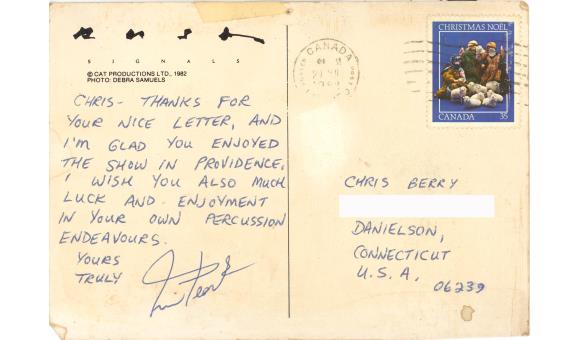 Rush
SIGNALS
© CAT PRODUCTIONS LTD., 1982
PHOTO: DEBRA SAMUELS
CHRIS- THANKS FOR
YOUR NICE LETTER, AND
I'M GLAD YOU ENJOYED
THE SHOW IN PROVIDENCE.
I WISH YOU ALSO MUCH
LUCK AND ENJOYMENT
IN YOUR OWN PERCUSSION
ENDEAVOURS.
YOURS
TRULY
Neil Peart
CANADA
CHRISTMAS NOËL
CANADA 35
CHRIS BERRY
DANIELSON,
CONNECTICUT
U.S.A.
06239